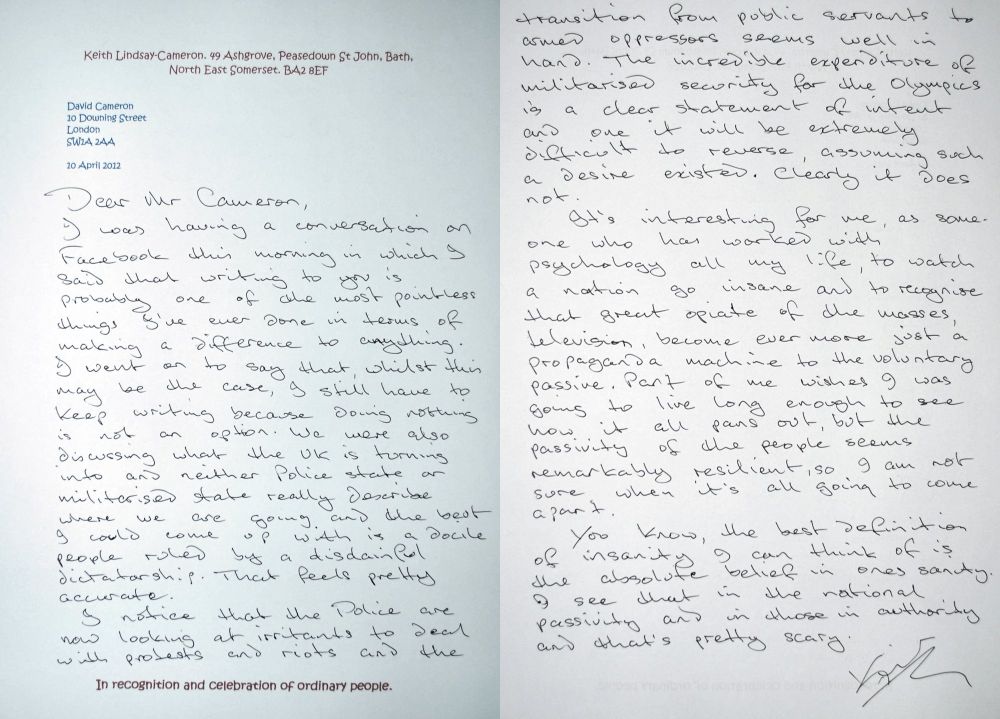 Keith Lindsay-Cameron. 49 Ashgrove, Peasedown St John, Bath,
North East Somerset. BA2 8EF
David Cameron
10 Downing Street
London
SW1A 2AA
10 April 2012
Dear Mr Cameron,
I was having a conversation on
Facebook this morning in which I
said that writing to you is
probably one of the most pointless
things I've ever done in terms of
making a difference to anything.
I went on to say that, whilst this
may be the case, I still have to
keep writing because doing nothing
is not an option. We were also
discussing what the UK is turning
into and neither Police state or
militarised state really describe
where we are going and the best
I could come up with is a docile
people ruled by a disdainful
dictatorship. That feels pretty
accurate.
I notice that the Police are
now looking at irritants to deal
with protests and riots and the
In recognition and celebration of ordinary people.
transition from public servants to
armed oppressors seems well in
hand. The incredible expenditure of
militarised security for the Olympics
is a clear statement of intent
and one it will be extremely
difficult to reverse, assuming such
a desire existed. Clearly it does
not.
It's interesting for me, as some-
one who has worked with
psychology all my life, to watch
a nation go insane and to recognise
that great opiate of the masses,
television, become ever more just a
propaganda machine to the voluntary
passive. Part of me wishes I was
going to live long enough to see
how it all pans out, but the
passivity of the people seems
remarkably resilient, so I am not
sure when it's all going to come
apart.
You know, the best definition
of insanity I can think of is
the absolute belief in ones sanity.
I see that in the national
passivity and in those in authority
and that's pretty scary.